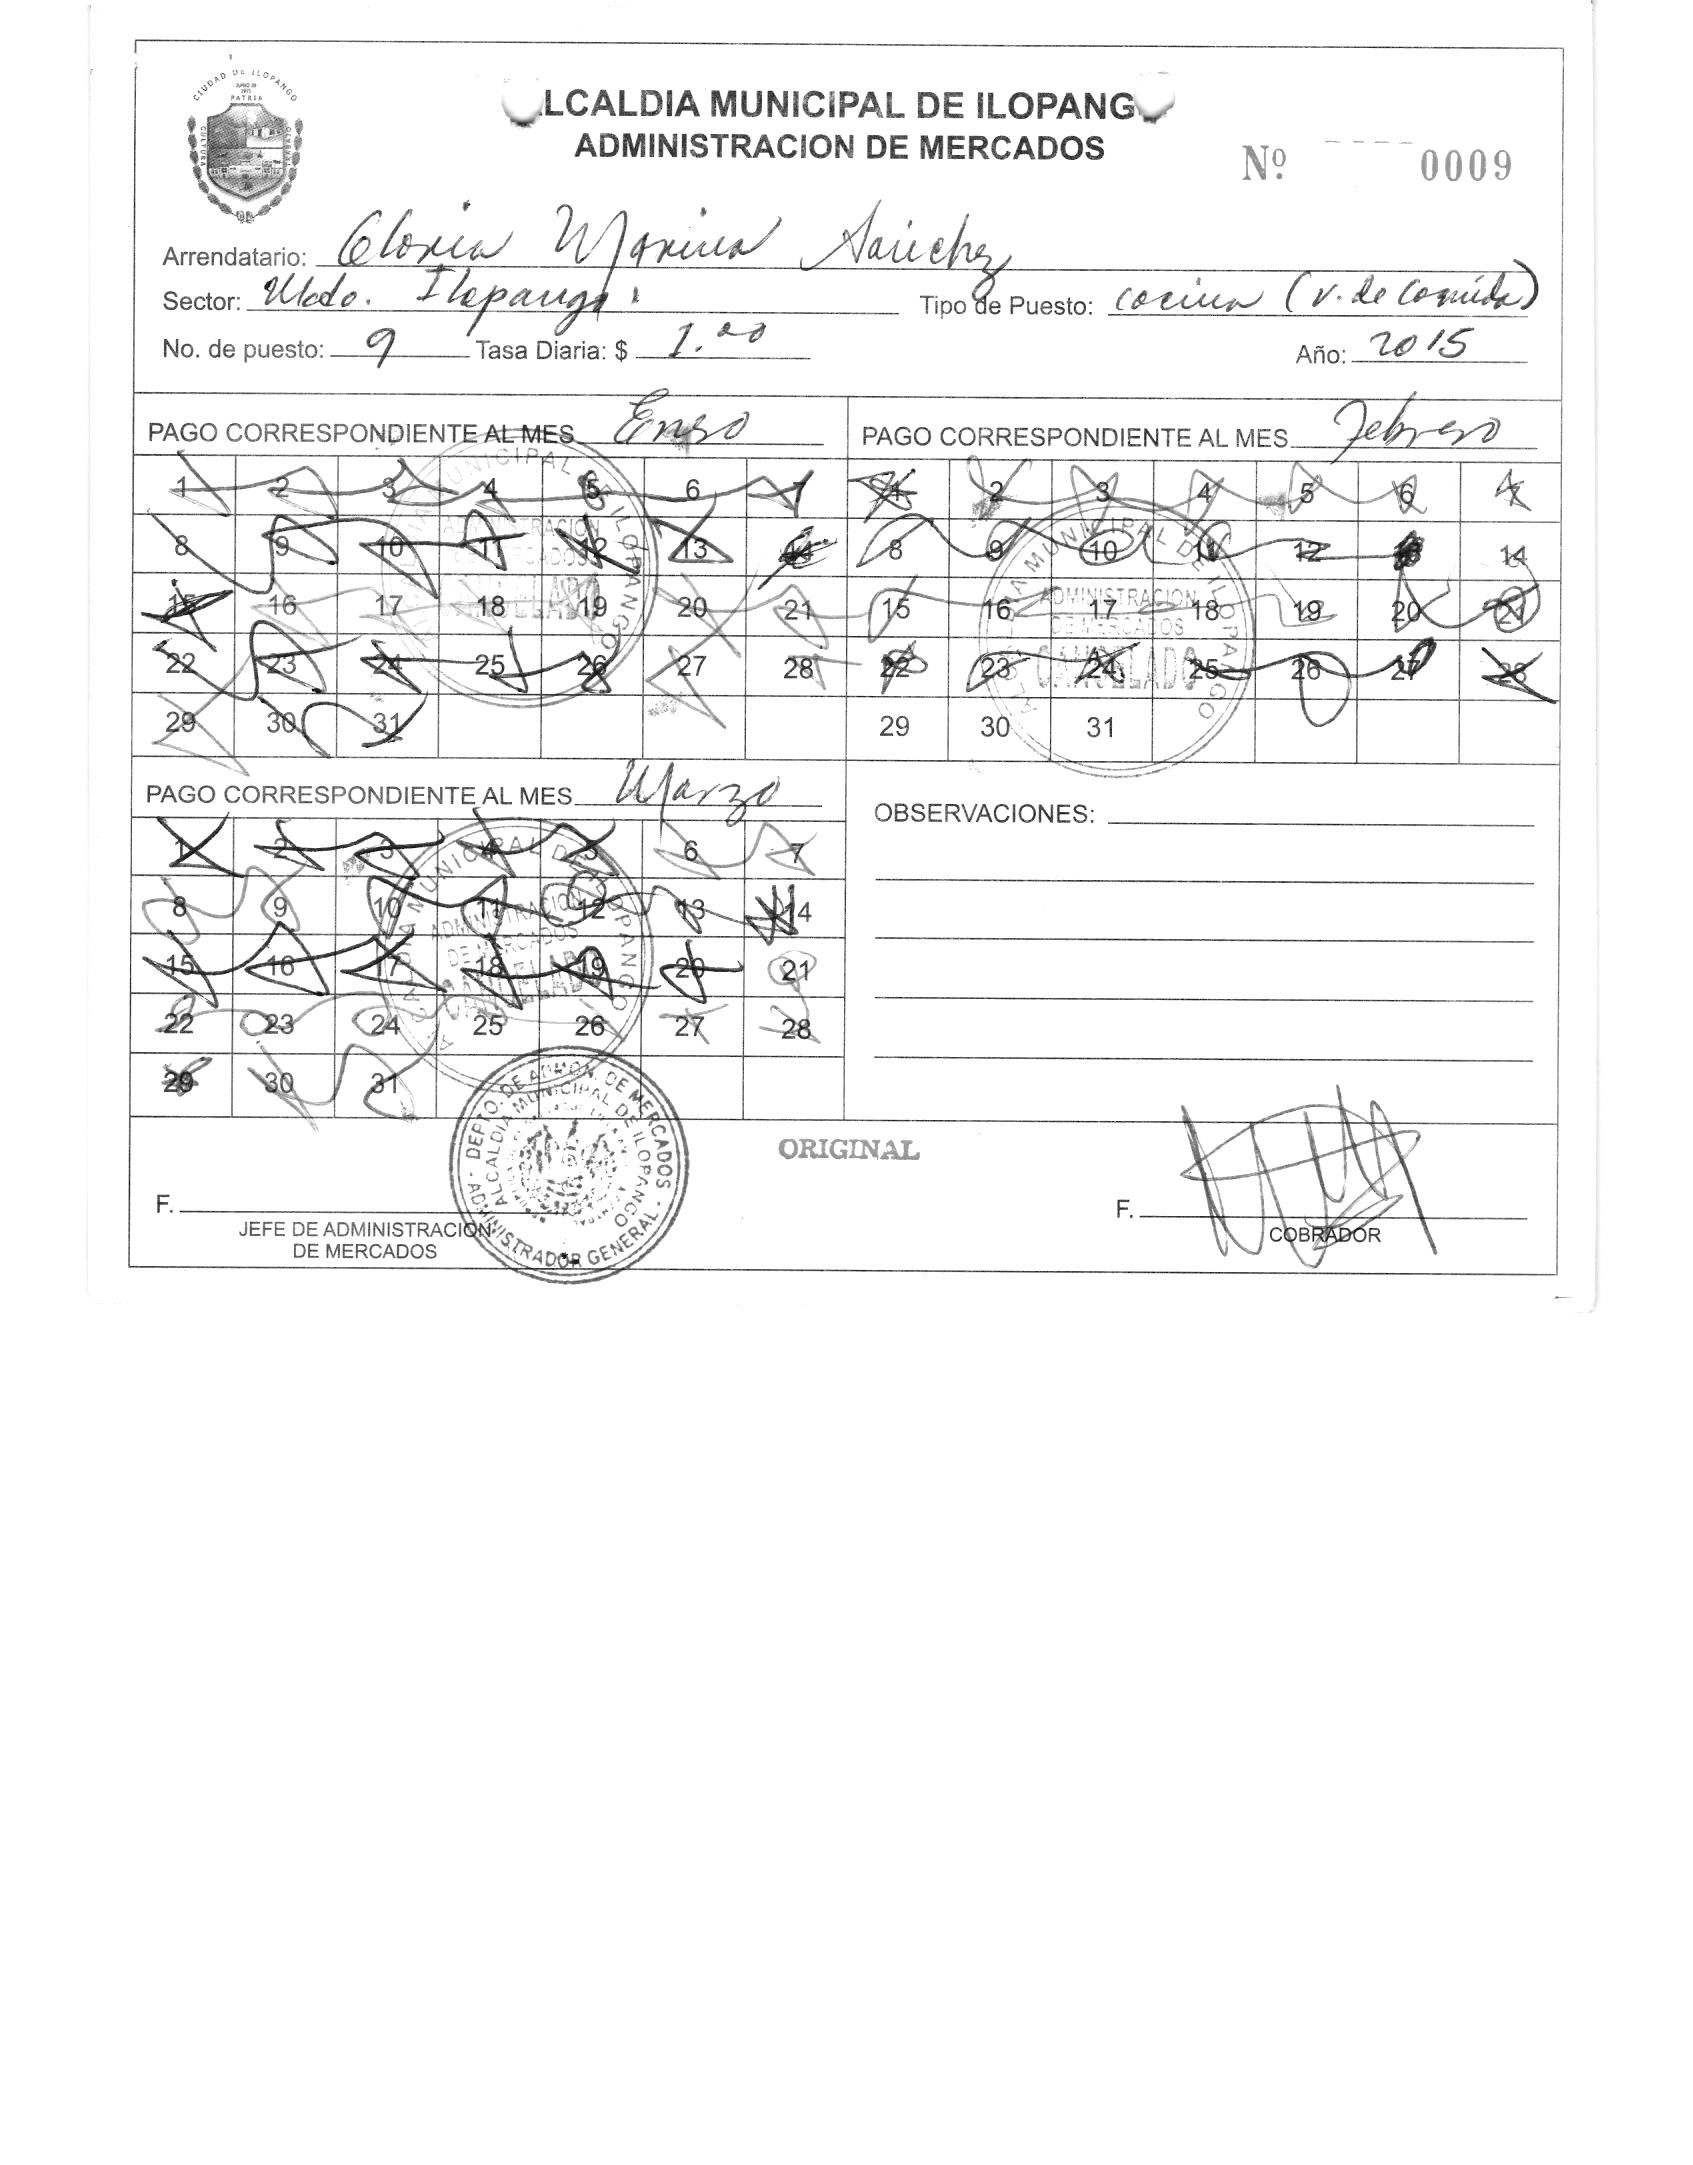 CIUDAD DE ILOPANGO
PATRIA
CULTURA
LCALDIA MUNICIPAL DE ILOPANG
ADMINISTRACION DE MERCADOS
Nº 0009
Arrendatario: Gloria Marina Sánchez
Sector: Mcdo. Ilopango Tipo de Puesto: cocina (v. de Comida)
No. de puesto: 9 Tasa Diaria: $ 1.00 Año: 2015
PAGO CORRESPONDIENTE AL MES Enero
1 2 3 4 5 6 7
8 9 10 11 12 13 14
15 16 17 18 19 20 21
22 23 24 25 26 27 28
29 30 31
MUNICIPAL DE ILOPANGO
PAGO CORRESPONDIENTE AL MES Febrero
1 2 3 4 5 6 7
8 9 10 11 12 13 14
15 16 17 18 19 20 21
22 23 24 25 26 27 28
29 30 31
ALCALDIA MUNICIPAL DE ILOPANGO
ADMINISTRACION
DE MERCADOS
CANCELADO
PAGO CORRESPONDIENTE AL MES Marzo
1 2 3 4 5 6 7
8 9 10 11 12 13 14
15 16 17 18 19 20 21
22 23 24 25 26 27 28
29 30 31
ALCALDIA MUNICIPAL DE ILOPANGO
ADMINISTRACION
DE MERCADOS
CANCELADO
OBSERVACIONES:
DEPTO. DE ADMON. DE MERCADOS
ALCALDIA MUNICIPAL DE ILOPANGO
ADMINISTRADOR GENERAL
ORIGINAL
F.
JEFE DE ADMINISTRACION
DE MERCADOS
F.
COBRADOR